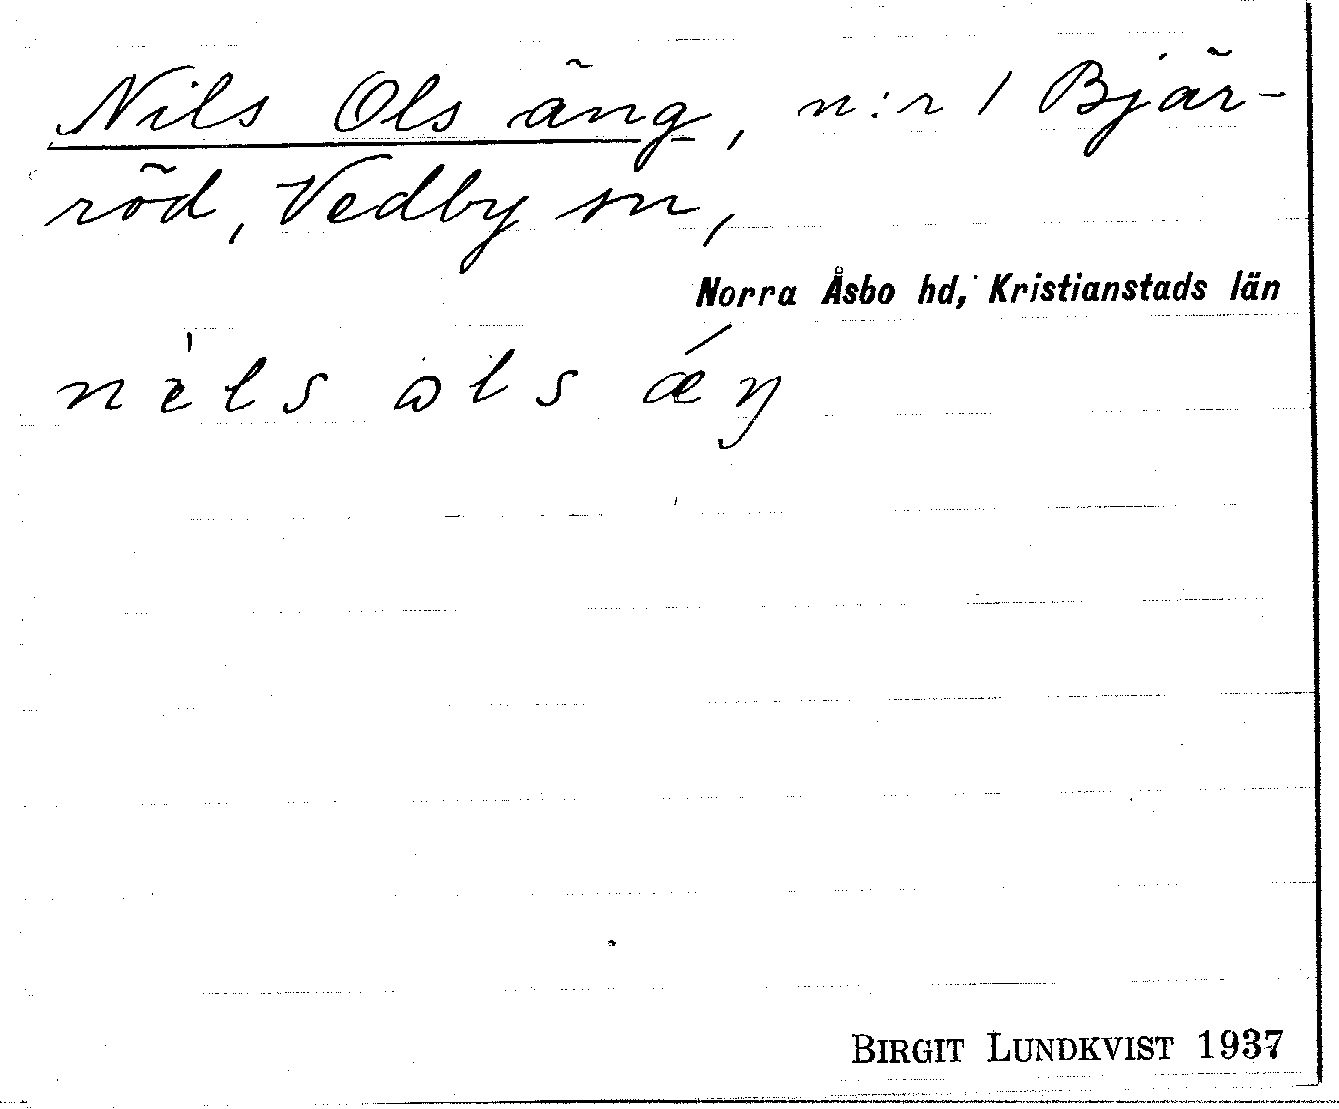 Nils Ols äng, n:r 1 Bjär-
röd, Vedby sn,
Norra Åsbo hd, Kristianstads län
nèls ɷls ǽŋ
BIRGIT LUNDKVIST 1937